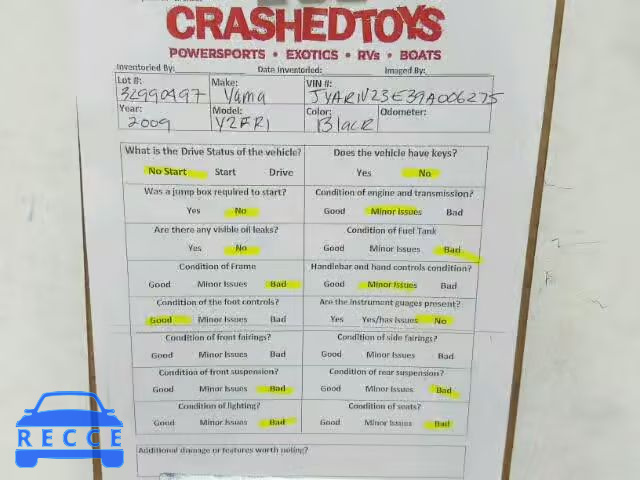 CRASHEDTOYS
POWERSPORTS • EXOTICS • RVs • BOATS
Inventoried By: Date Inventoried: Imaged By:
Lot #: Make: VIN #:
32990497 Yama JYARN23E39A006275
Year: Model: Color: Odometer:
2009 YZFR1 Black
What is the Drive Status of the vehicle? Does the vehicle have keys?
No Start Start Drive Yes No
Was a jump box required to start? Condition of engine and transmission?
Yes No Good Minor Issues Bad
Are there any visible oil leaks? Condition of Fuel Tank
Yes No Good Minor Issues Bad
Condition of Frame Handlebar and hand controls condition?
Good Minor Issues Bad Good Minor Issues Bad
Condition of the foot controls? Are the instrument guages present?
Good Minor Issues Bad Yes Yes/has Issues No
Condition of front fairings? Condition of side fairings?
Good Minor Issues Bad Good Minor Issues Bad
Condition of front suspension? Condition of rear suspension?
Good Minor Issues Bad Good Minor Issues Bad
Condition of lighting? Condition of seats?
Good Minor Issues Bad Good Minor Issues Bad
Additional damage or features worth noting?
RECCE